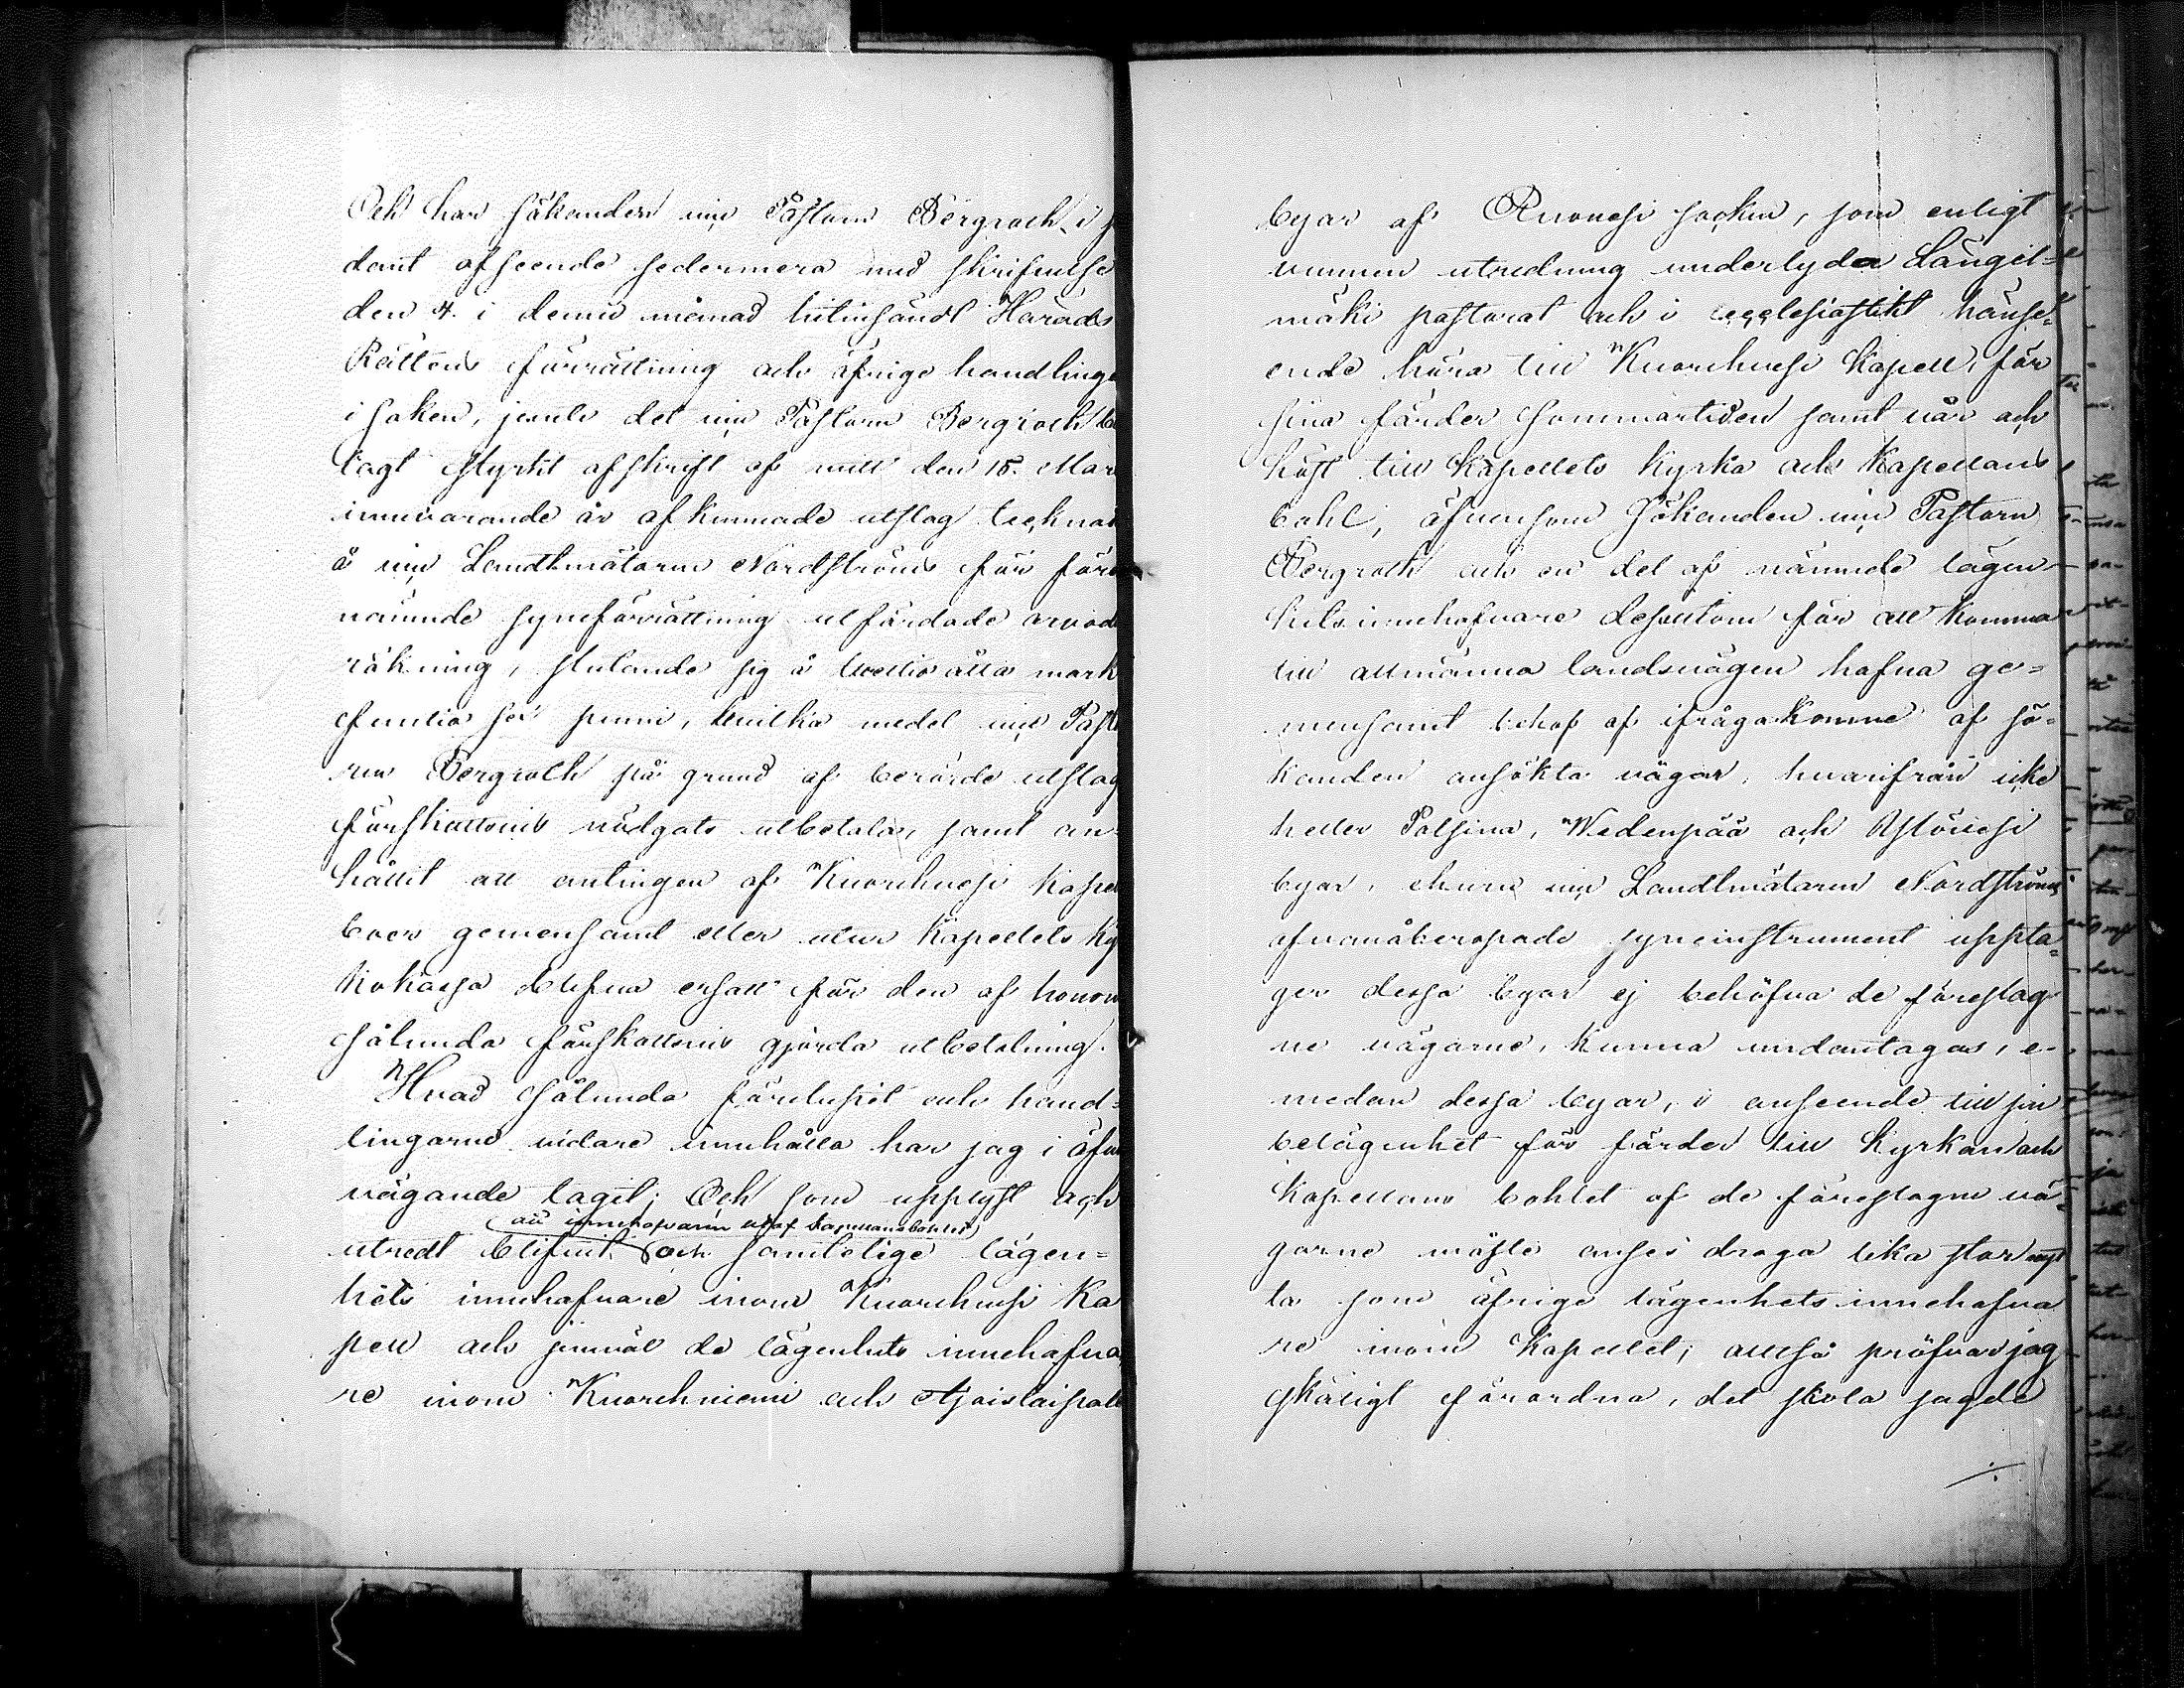 Och har sökanden vice Pastorn Bergroth i s
dant afseende sedermera med skrifvelse
den 4. i denne månad hitinsändt Härads
Rättens förrättning och öfrige handlinge
i saken, jemte det vice Pastorn Bergroth bi
lagt styrkt afskrift af mitt den 15. Mar
innevarande år afkunnade utslag tecknat
å vice Landtmätaren Nordströms för före
nämnde syneförrättning utfärdade arvode
räkning, slutande sig å tvåtio åtta mark
femtio sex penni, hvilka medel vice Pasto
ren Bergroth på grund af berörde utslag
förskottsvis nödgats utbetala, samt an-
hållit att antingen af Kuorehvesi kapell
boer gemensamt eller utur kapellets Kyr
kokassa blifva ersatt för den af honom
sålunda förskottsvis gjorda utbetalning.
Hvad sålunda förelupit och hand=
lingarne vidare innehålla har jag i öfver
vägande tagit; Och som upplyst och
att innehafvaren utaf kapellansbohlet
utredt blifvit och samtelige lägen=
hets innehafvare inom Kuorehvesi Ka
pell och jemväl de lägenhets innehafva
re inom Kuorehniemi och
byar af Ruovesi socken, som enligt
vunnen utredning underlyda Längel=
mäki pastorat och i ecclesiastikt hänse=
ende höra till Kuorehvesi kapell, för
sina färder sommartiden samt vår och
höst till kapellets kyrka och kapellans
bohl, äfvensom sökanden vice Pastorn
Bergroth och en del af nämnde lägen-
hets innehafvare dessutom för att komma
till allmänna landsvägen hafva ge=
mensamt behof af ifrågakomne af sö=
kanden ansökta vägar, hvarifrån icke
heller Palsina, Wedenpää och
byar, ehuru vice Landtmätaren Nordströms
ofvanåberopade syneinstrument uppta=
ger dessa byar ej behöfva de föreslag
ne vägarne, kunna undantagas, e-
medan dessa byar, i anseende till sin
belägenhet för färder till Kyrkan och
Kapellans bohlet af de föreslagne vä=
garne måste anses draga lika stor nyt
ta som öfrige lägenhets innehafva
re inom Kapellet; alltså pröfvar jag
skäligt förordna, det skola sagde